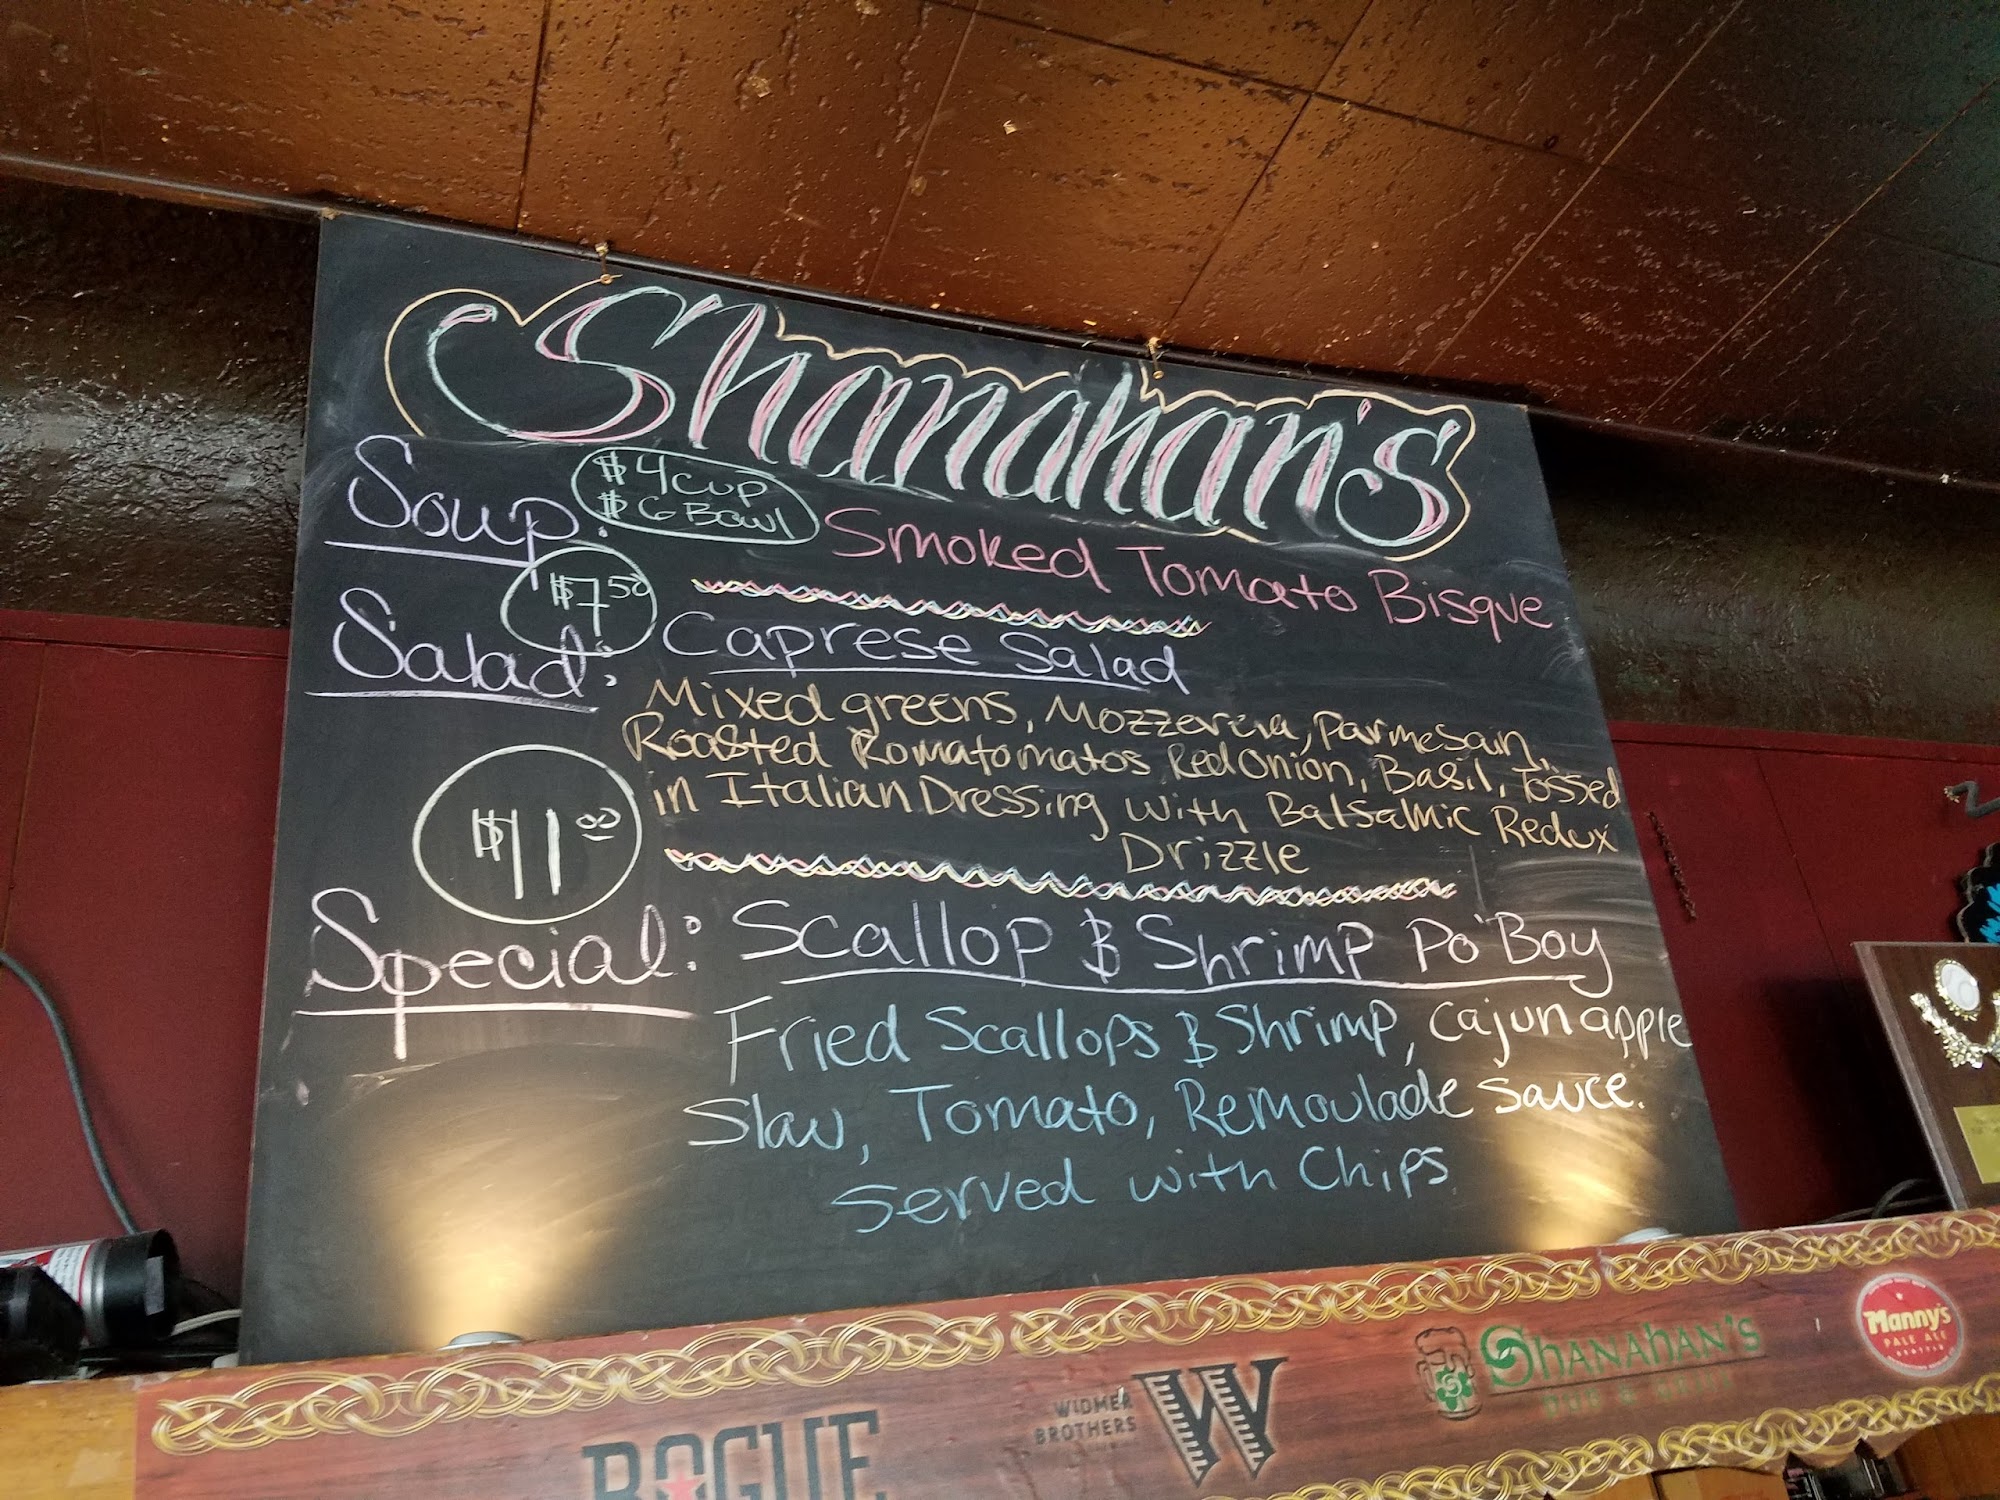 Shanahan's
Soup: $4 cup
$6 Bowl
Smoked Tomato Bisque
Salad: $7.50 Caprese Salad
Mixed greens, Mozzerella, Parmesan,
Roasted Romatomatos Red Onion, Basil, Tossed
in Italian Dressing with Balsalmic Redux
Drizzle
$11.00
Special: Scallop & Shrimp Po'Boy
Fried Scallops & Shrimp, Cajun apple
Slaw, Tomato, Remoulade Sauce.
Served with Chips
ROGUE
WIDMER
BROTHERS
W
SHANAHAN'S
PUB & GRILL
Manny's
PALE ALE
SEATTLE